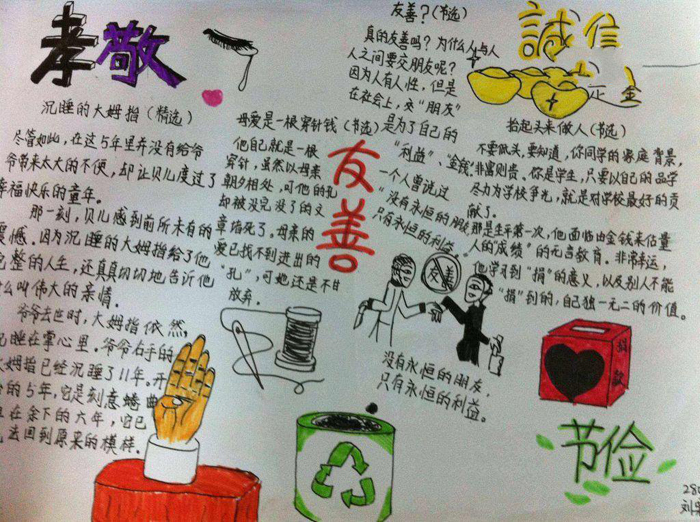 孝敬
沉睡的大姆指（精选）
尽管如此，在这5年里并没有给爷
爷带来太大的不便，却让贝儿度过了
幸福快乐的童年。
那一刻，贝儿感到前所未有的
震憾。因为沉睡的大姆指给了他
完整的人生，还真真切切地告诉他
什么叫伟大的亲情。
爷爷去世时，大姆指依然
沉睡在掌心里。爷爷右手的
大姆指已经沉睡了11年。开
的5年，它是刻意蜷曲
在余下的六年，它已
去回到原来的模样.
母爱是一根穿针钱（书选）
他自己就是一根
穿针，虽然以母亲
朝夕相处，可他的孔
却被没完没了的文
章堵死了。母亲的
爱已找不到进出的
“孔”，可她还是不甘
放弃.
友善
友善？（书选）
真的友善吗？为什么人与人
人之间要交朋友呢？
因为人有人性，但是
在社会上，交“朋友”
是为了自己的
“利益”、金钱.
一个人曾说过
“没有永恒的朋友
只有永恒的利益。”
友善
没有永恒的朋友，
只有永恒的利益。
誠信
金
抬起头来做人（书选）
不要低头，要知道，你同学的家庭背景，
非富则贵。你是学生，只要以自己的品学
尽力为学校争光，就是对学校最好的贡
献了。
那是生平第一次，他面临由金钱来估量
人的“成绩”的无言教育。非常幸运，
他学习到“捐”的意义，以及别人不能
“捐”到的，自己独一无二的价值。
捐款
节俭
280
刘